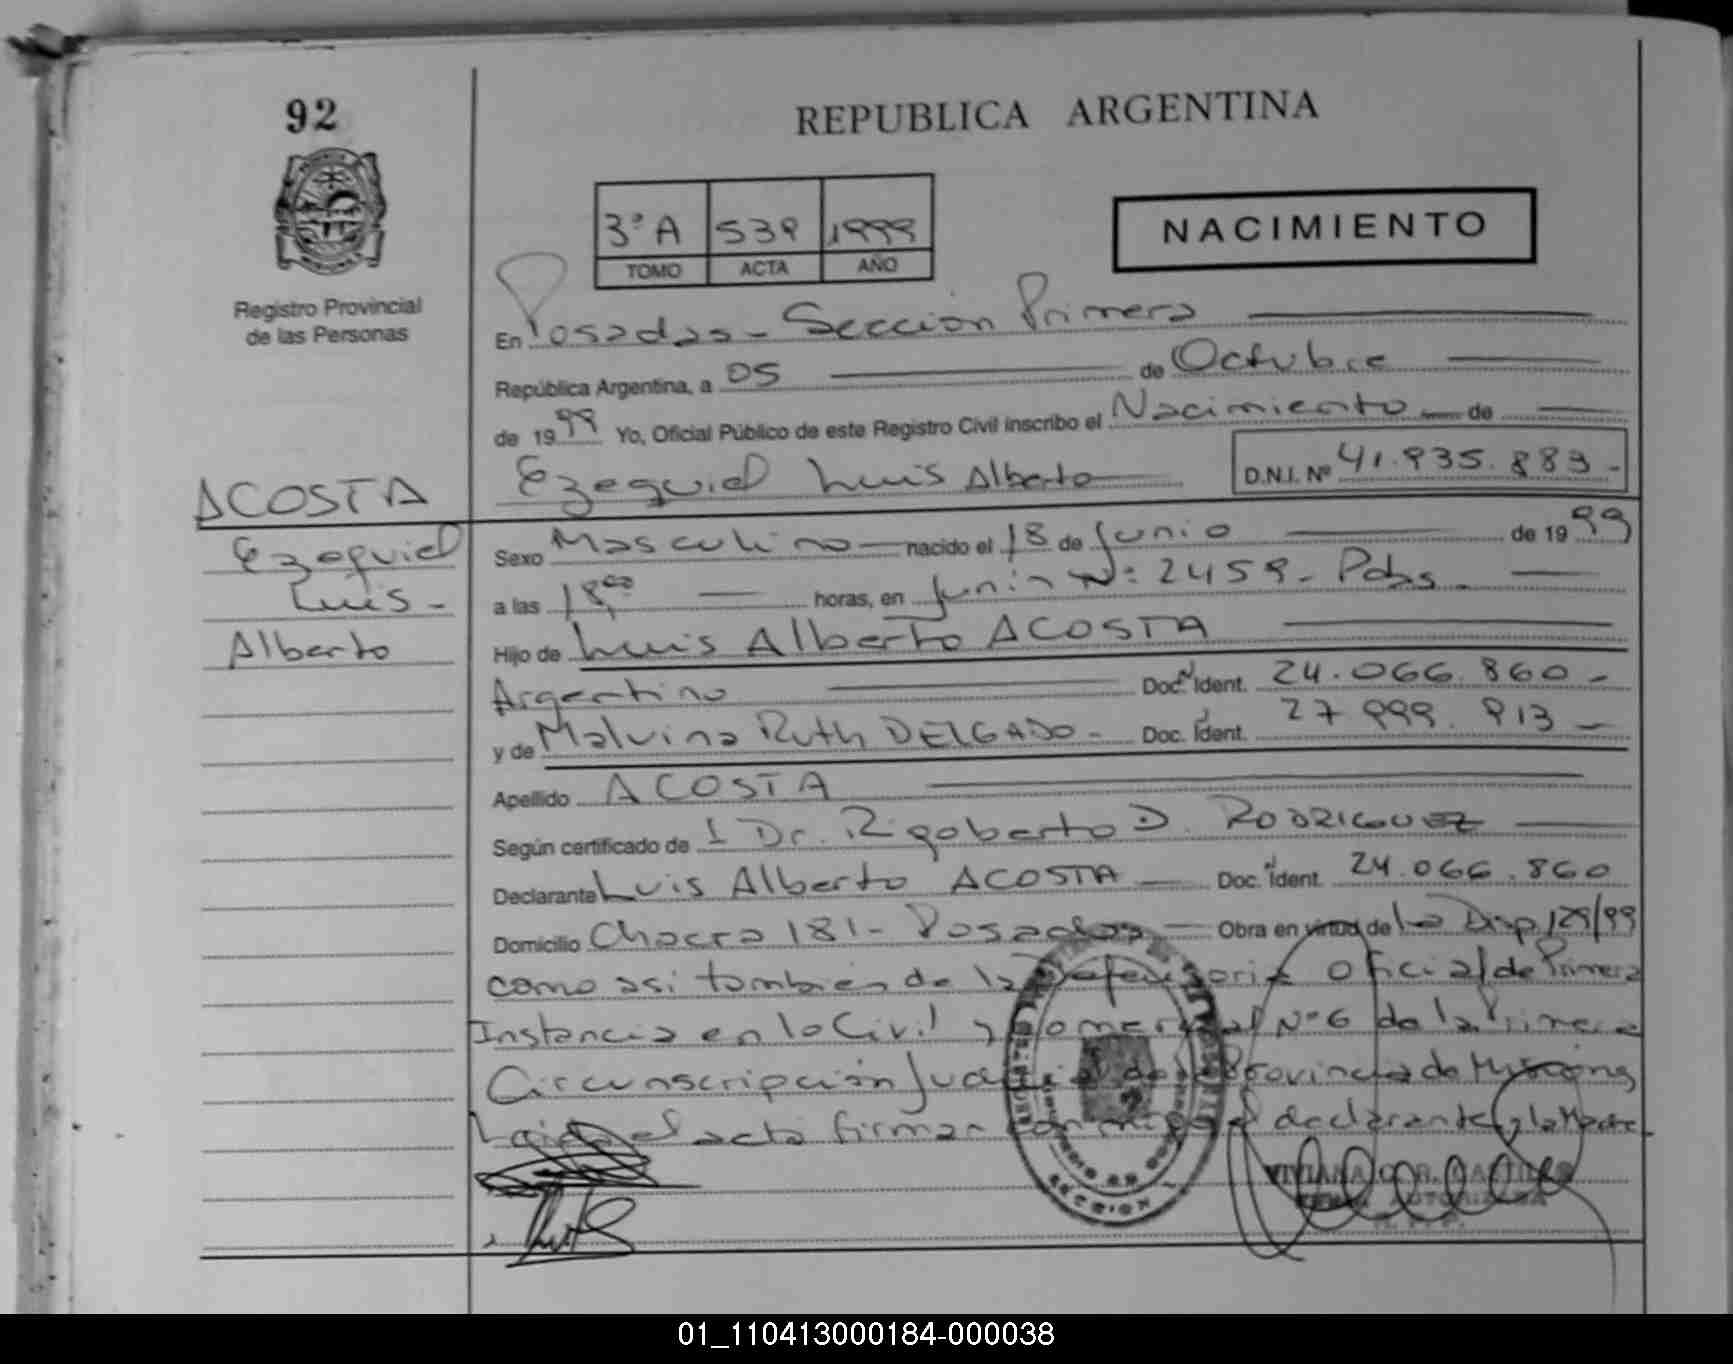 92
REPUBLICA ARGENTINA
3º A 539 1999
TOMO ACTA AÑO
NACIMIENTO
Registro Provincial
de las Personas
En Posadas - Sección Primera
República Argentina, a 05 de Octubre
de 1999 Yo, Oficial Público de este Registro Civil inscribo el Nacimiento de
Ezequiel Luis Alberto D.N.I. Nº 41.935.883-
ACOSTA
Ezequiel
Luis -
Alberto
Sexo Masculino nacido el 18 de Junio de 1999
a las 18,00 horas, en Junín Nº: 2459 - Pdas -
Hijo de Luis Alberto ACOSTA
Argentino Doc. Ident. 24.066.860 -
y de Malvina Ruth DELGADO - Doc. Ident. 27 999. 913 -
Apellido ACOSTA
Según certificado de 1 Dr. Rigoberto D. RODRIGUEZ
Declarante Luis Alberto ACOSTA Doc. Ident. 24.066.860
Domicilio Chacra 181 - Posadas Obra en virtud de la Disp. 129/99
como asi tambien de la Defensoria Oficial de Primera
Instancia en lo Civil y Comercial Nº 6 de la Primera
Circunscripción Judicial de la Provincia de Misiones
Leida el acta firman conmigo el declarante y la Madre
SECCION 1
01_110413000184-000038